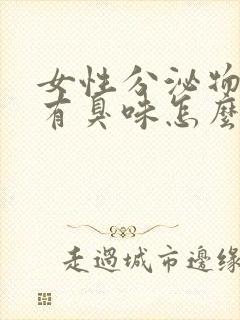 女性分泌物
有臭味怎麼
走過城市邊緣